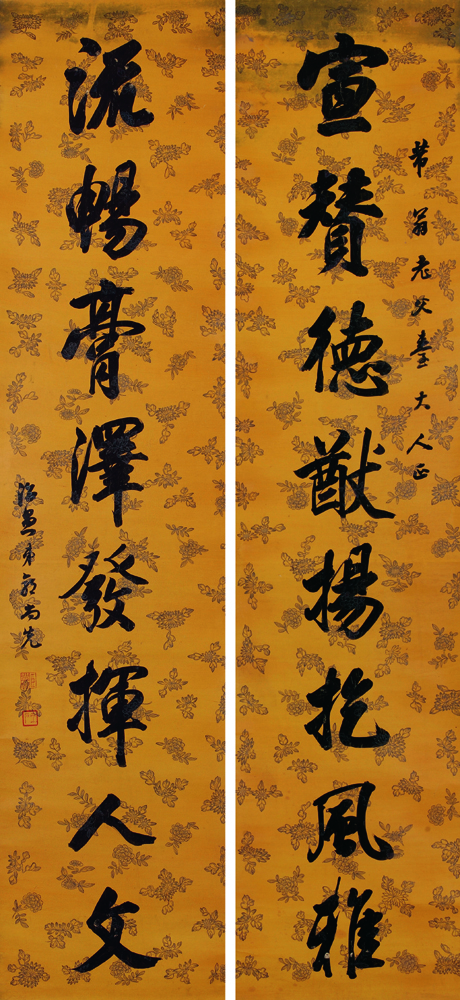 翁老父臺大人正
宣贊德猷揚扢風雅
流暢膏澤發揮人文
治愚弟郭尚先